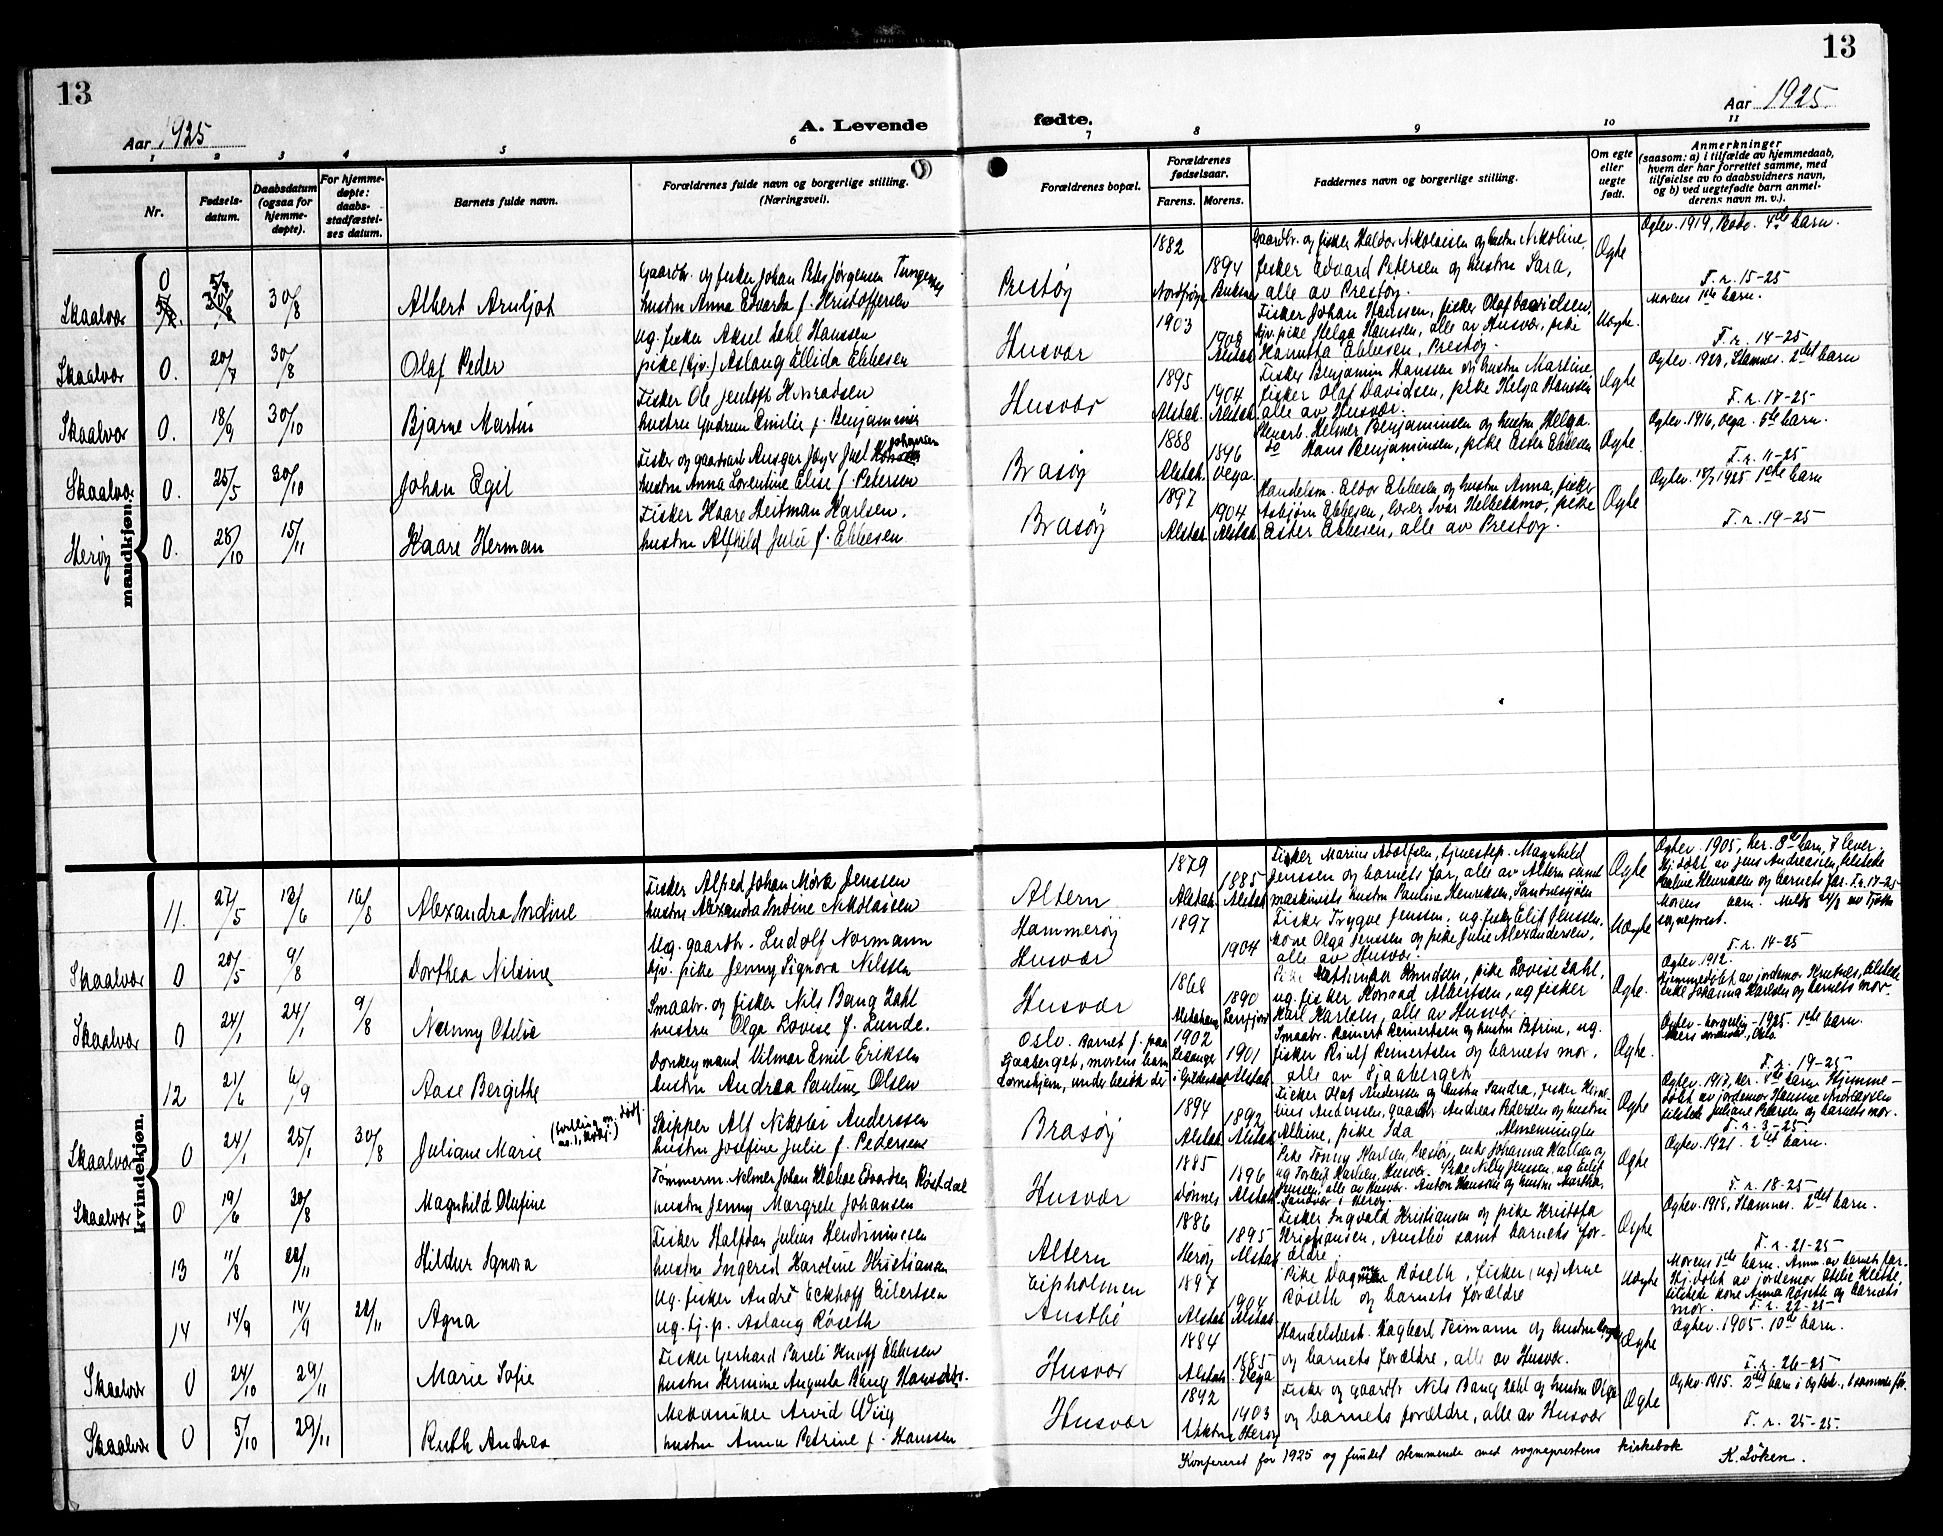 13
13
Aar 1925
A. Levende
fødte.
Aar 1925
1 2 3 4 5 6 7 8 9 10 11
Nr.
Fødsels-
datum.
Daabsdatum
(ogsaa for
hjemme-
døpte).
For hjemme-
døpte:
daabs-
stadfæstel-
ses datum.
Barnets fulde navn.
Forældrenes fulde navn og borgerlige stilling.
(Næringsvei).
Forældrenes bopæl.
Forældrenes
fødselsaar.
Farens. Morens.
Faddernes navn og borgerlige stilling.
Om egte
eller
uegte
født.
Anmerkninger
(saasom: a) i tilfælde av hjemmedaab,
hvem der har forrettet samme, med
tilføielse av to daabsvidners navn,
og b) ved uegtefødte barn anmel-
derens navn m. v.).
mandkjøn.
Skaalvær 0 30/8 Albert Arnljot
Gaardbr. og fisker Johan Peter Jørgensen Tungenes
hustru Anna Edvarda f. Kristoffersen
Prestøy
1882
1894
Gaardbr. og fisker Haldor Nikolaisen og hustru Nikoline,
fisker Edvard Petersen og hustru Sara,
alle av Prestøy.
Ægte
Ægtev. 1919, Bodø. 4de barn.
F. r. 15-25
Skaalvær 0. 20/7 30/8 Olaf Peder
Ug. fisker Aksel Zahl Hanssen
pike (hjv.) Aslaug Ellida Ebbesen
Husvær
1903
1908 Alstah.
Fisker Johan Hanssen, fisker Olaf Davidsen,
hjv. pike Helga Hanssen, alle av Husvær, pike
Ebbesen, Prestøy.
Uægte.
Morens 1ste barn.
F. r. 14-25
Skaalvær 0. 18/9 30/10 Bjarne Martin
Fisker Ole Jentoft Konradsen
hustru Gudrun Emilie f. Benjaminsen
Husvær
1895 Alstah.
1904 Alstah.
Fisker Benjamin Hanssen og hustru Martine,
fisker Olaf Davidsen, pike Helga Hanssen
alle av Husvær.
Ægte
Ægtev. 1923, Stamnes. 2det barn
F. r. 17-25
Skaalvær 0. 25/5 30/10 Johan Egil
Fisker og gaardarb. Ansgar Jøger Juel Johansen
hustru Anna Lorentine Elise f. Petersen
Brasøy
1888 Alstah.
1896 Vega.
Stenarb. Helmer Benjaminsen og hustru Helga.
do Hans Benjaminsen, pike Ester Ebbesen
Ægte.
Ægtev. 1916, Vega. 5te barn.
F. r. 11-25
Herøy 0. 28/10 15/11 Kaare Herman
Fisker Kaare Heitman Karlsen.
hustru Alfhild Julie f. Ebbesen
Brasøy
1897 Alstah.
1904 Alstah.
Handelsm. Eldor Ebbesen og hustru Anna, fisker
Asbjørn Ebbesen, lærer Ivar Helbekkmo, pike
Ester Ebbesen, alle av Prestøy.
Ægte
Ægtev. 18/7 1925 1ste barn
F. r. 19-25
kvindekjøn.
11. 27/5 13/6 16/8 Alexandra Indine
Fisker Alfred Johan Mørk Jenssen
hustru Alexandra Indine Nikolaisen
Altern
1879 Alstah.
1885 Alstah.
Fisker Marius Adolfsen, tjenestep. Magnhild
Jenssen og barnets far, alle av Altern samt
maskinists hustru Pauline Henriksen, Sandnessjøen
Ægte
Ægtev. 1905, her. 8de barn, 7 lever.
Hj. døbt av Jens Andreassen, tilstede
Pauline Henriksen og barnets far. F. r. 17-25
Skaalvær 0 20/5 9/8 Dorthea Nilsine
Ug. gaardbr. Ludolf Normann
hjv. pike Jenny Signora Nilssen
Hammerøy
Husvær
1897
1904
Fisker Trygve Jenssen, ug. fisker Eilif Jenssen,
kone Olga Jenssen og pike Julie Alexandersen,
alle av Husvær.
Uægte
Morens barn. Meldt 24/8 av Tjøtta
sogneprest.
F. r. 14-25
Skaalvær 0 24/1 24/1 9/8 Nanny Otelie
Smaabr. og fisker Nils Bang Zahl
hustru Olga Lovise f. Lunde.
Husvær
1868 Alstahaug
1890
Pike Knudsen, pike Lovise Zahl,
ug. fisker Konrad Albertsen, ug fisker
Karl Karlsen, alle av Husvær.
Ægte.
Ægtev. 1912.
Hjemmedøbt av jordemor Knutsen, tilstede
enke Johanna Karlsen og barnets mor.
12 21/6 6/9 Aase Bergithe
Donkeymand Vilmar Emil Eriksen
hustru Andrea Pauline Olsen
Oslo. Barnet f. paa
Gaaberget, morens barn
domshjem, under besøk der
1902
1901 Alstah.
Smaabr. Reinert Reinertsen og hustru Petrine, ug.
fisker Rolf Reinertsen og barnets mor,
alle av Gaaberget.
Ægte.
Ægtev. borgerlig 1925. 1ste barn.
F. r. 19-25
Skaalvær 0 24/1 25/1 30/8 Juliane Marie
(tvilling m. dødf.
no. 1, )
Skipper Alf Nikolai Anderssen
hustru Josefine Julie f. Pedersen
Brasøy
1894 Alstah.
1892 Alstah.
Fisker Olaf Andersen og hustru Sandra, fisker
Andersen, gaardbr. Andreas Pedersen og hustru
Albine, pike Ida Almenningen
Ægte
Ægtev. 1917, her. barn Hjemme-
døbt av jordemor Hansine Andreassen
tilstede Juliane Petersen og barnets mor.
F. r. 3-25
Skaalvær 0 19/6 30/8 Magnhild Olufine
Tømmerm. Nelmer Johan Edvardsen Røstdal
hustru Jenny Margrete Johansen
Husvær
1885 Dønnes
1896 Alstah.
Pike Tonny Karlsen, Prestøy, enke Johanna Karlsen og
ug Torleif Karlsen, Husvær. Pike Nilly Jenssen, ug Eilif
Jenssen, alle av Husvær. Anton Hanssen og hustru Martha,
Sandvær i Herøy.
Ægte
Ægtev. 1921. 2det barn.
F. r. 18-25
13 11/8 22/11 Hildur Ignora
Fisker Halfdan Julius Hendriksen
hustru Ingerid Karoline Kristiansen
Altern
1886 Herøy
1895 Alstah.
Fisker Ingvald Kristiansen og pike Kristofa
Kristiansen, Austbø samt barnets for-
ældre.
Ægte
Ægtev. 1918, Stamnes. 2det barn.
F. r. 21-25
14 14/9 14/9 22/11 Agna
Ug. fisker André Eckhoff Eilertsen
ug. tj. p. Aslaug Røseth
Eipholmen
Austbø
1897 Alstah.
1904 Alstah.
Pike Dagmar Røseth, fisker (ug) Arne
Røseth og barnets forældre
Uægte
Morens 1ste barn. Anm. av barnets far.
Hj. døbt av jordemor Otelie Klette,
tilstede kone Anna Røseth og barnets
mor. F. r. 22-25
Skaalvær 0 24/10 29/11 Marie Sofie
Fisker Gerhard Pareli Knoff Ebbesen
hustru Hermine Augusta Bang Hansdtr.
Husvær
1884 Alstah.
1885 Vega
Handelsbest. Dagbart Teimann og hustru
og barnets forældre, alle av Husvær.
Ægte
Ægtev. 1905. 10de barn.
F. r. 26-25
Skaalvær 0 5/10 29/11 Ruth Andrea
Mekaniker Arvid Wiig
hustru Anna Petrine f. Hanssen
Husvær
1892
1903 Herøy
Fisker og gaardbr Nils Bang Zahl og hustru Olga
og barnets forældre, alle av Husvær
Ægte
Ægtev. 1915. 2det barn i
F. r. 25-25.
Konfereret for 1925 og fundet stemmende med sogneprestens kirkebok
K. Løken.